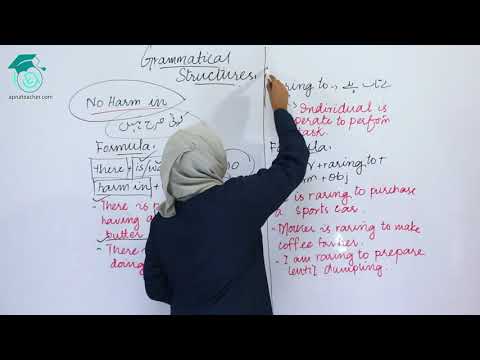 apnateacher.com
Grammatical
Structures.
No Harm in
کوئی حرج نہیں
Formula,
there + is/w no
harm in +
- There is
having a
butter
- There
doing
aring to
بے تاب
Individual is
perate to perform
task.
Formula
+ raring to +
+ obj
is raring to purchase
a sports car.
- Mother is raring to make
coffee
- I am raring to prepare
lentil dumpling.